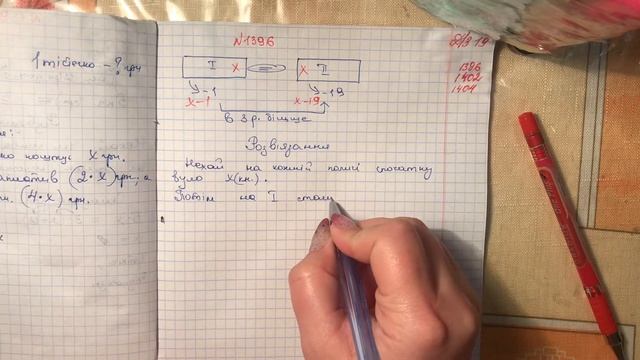 1 тістечко - ? грн
коштує x грн.
(2·x) грн, а
(4·x) грн.
N 1396
Д/З 19
1396
1402
1404
I x = x II
-1 -19
x-1 x-19
в 3 р. більше
Розв'язання
Нехай на кожній полиці спочатку
було x(кн.).
Потім на I стало